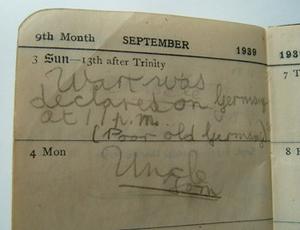 9th Month SEPTEMBER 1939
3 Sun—13th after Trinity
War was
declares on Germany
at 11 p.m..
(Poor old Germany)
4 Mon
Uncle
Tom
193
7 T
8 F